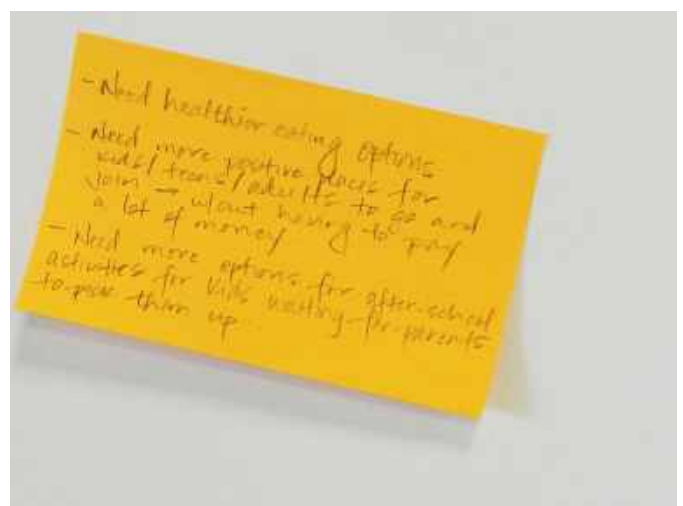 - Need healthier eating options
- Need more positive places for
kids/teens/adults to go and
join → w/out having to pay
a lot of money
- Need more options for after-school
activities for kids waiting for parents
to pick them up